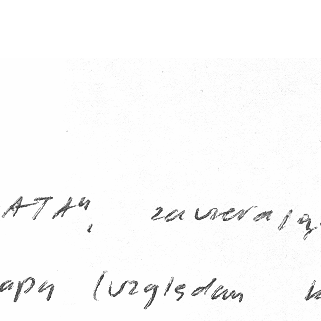 ATA", zawierają
apy (wzglsdam k